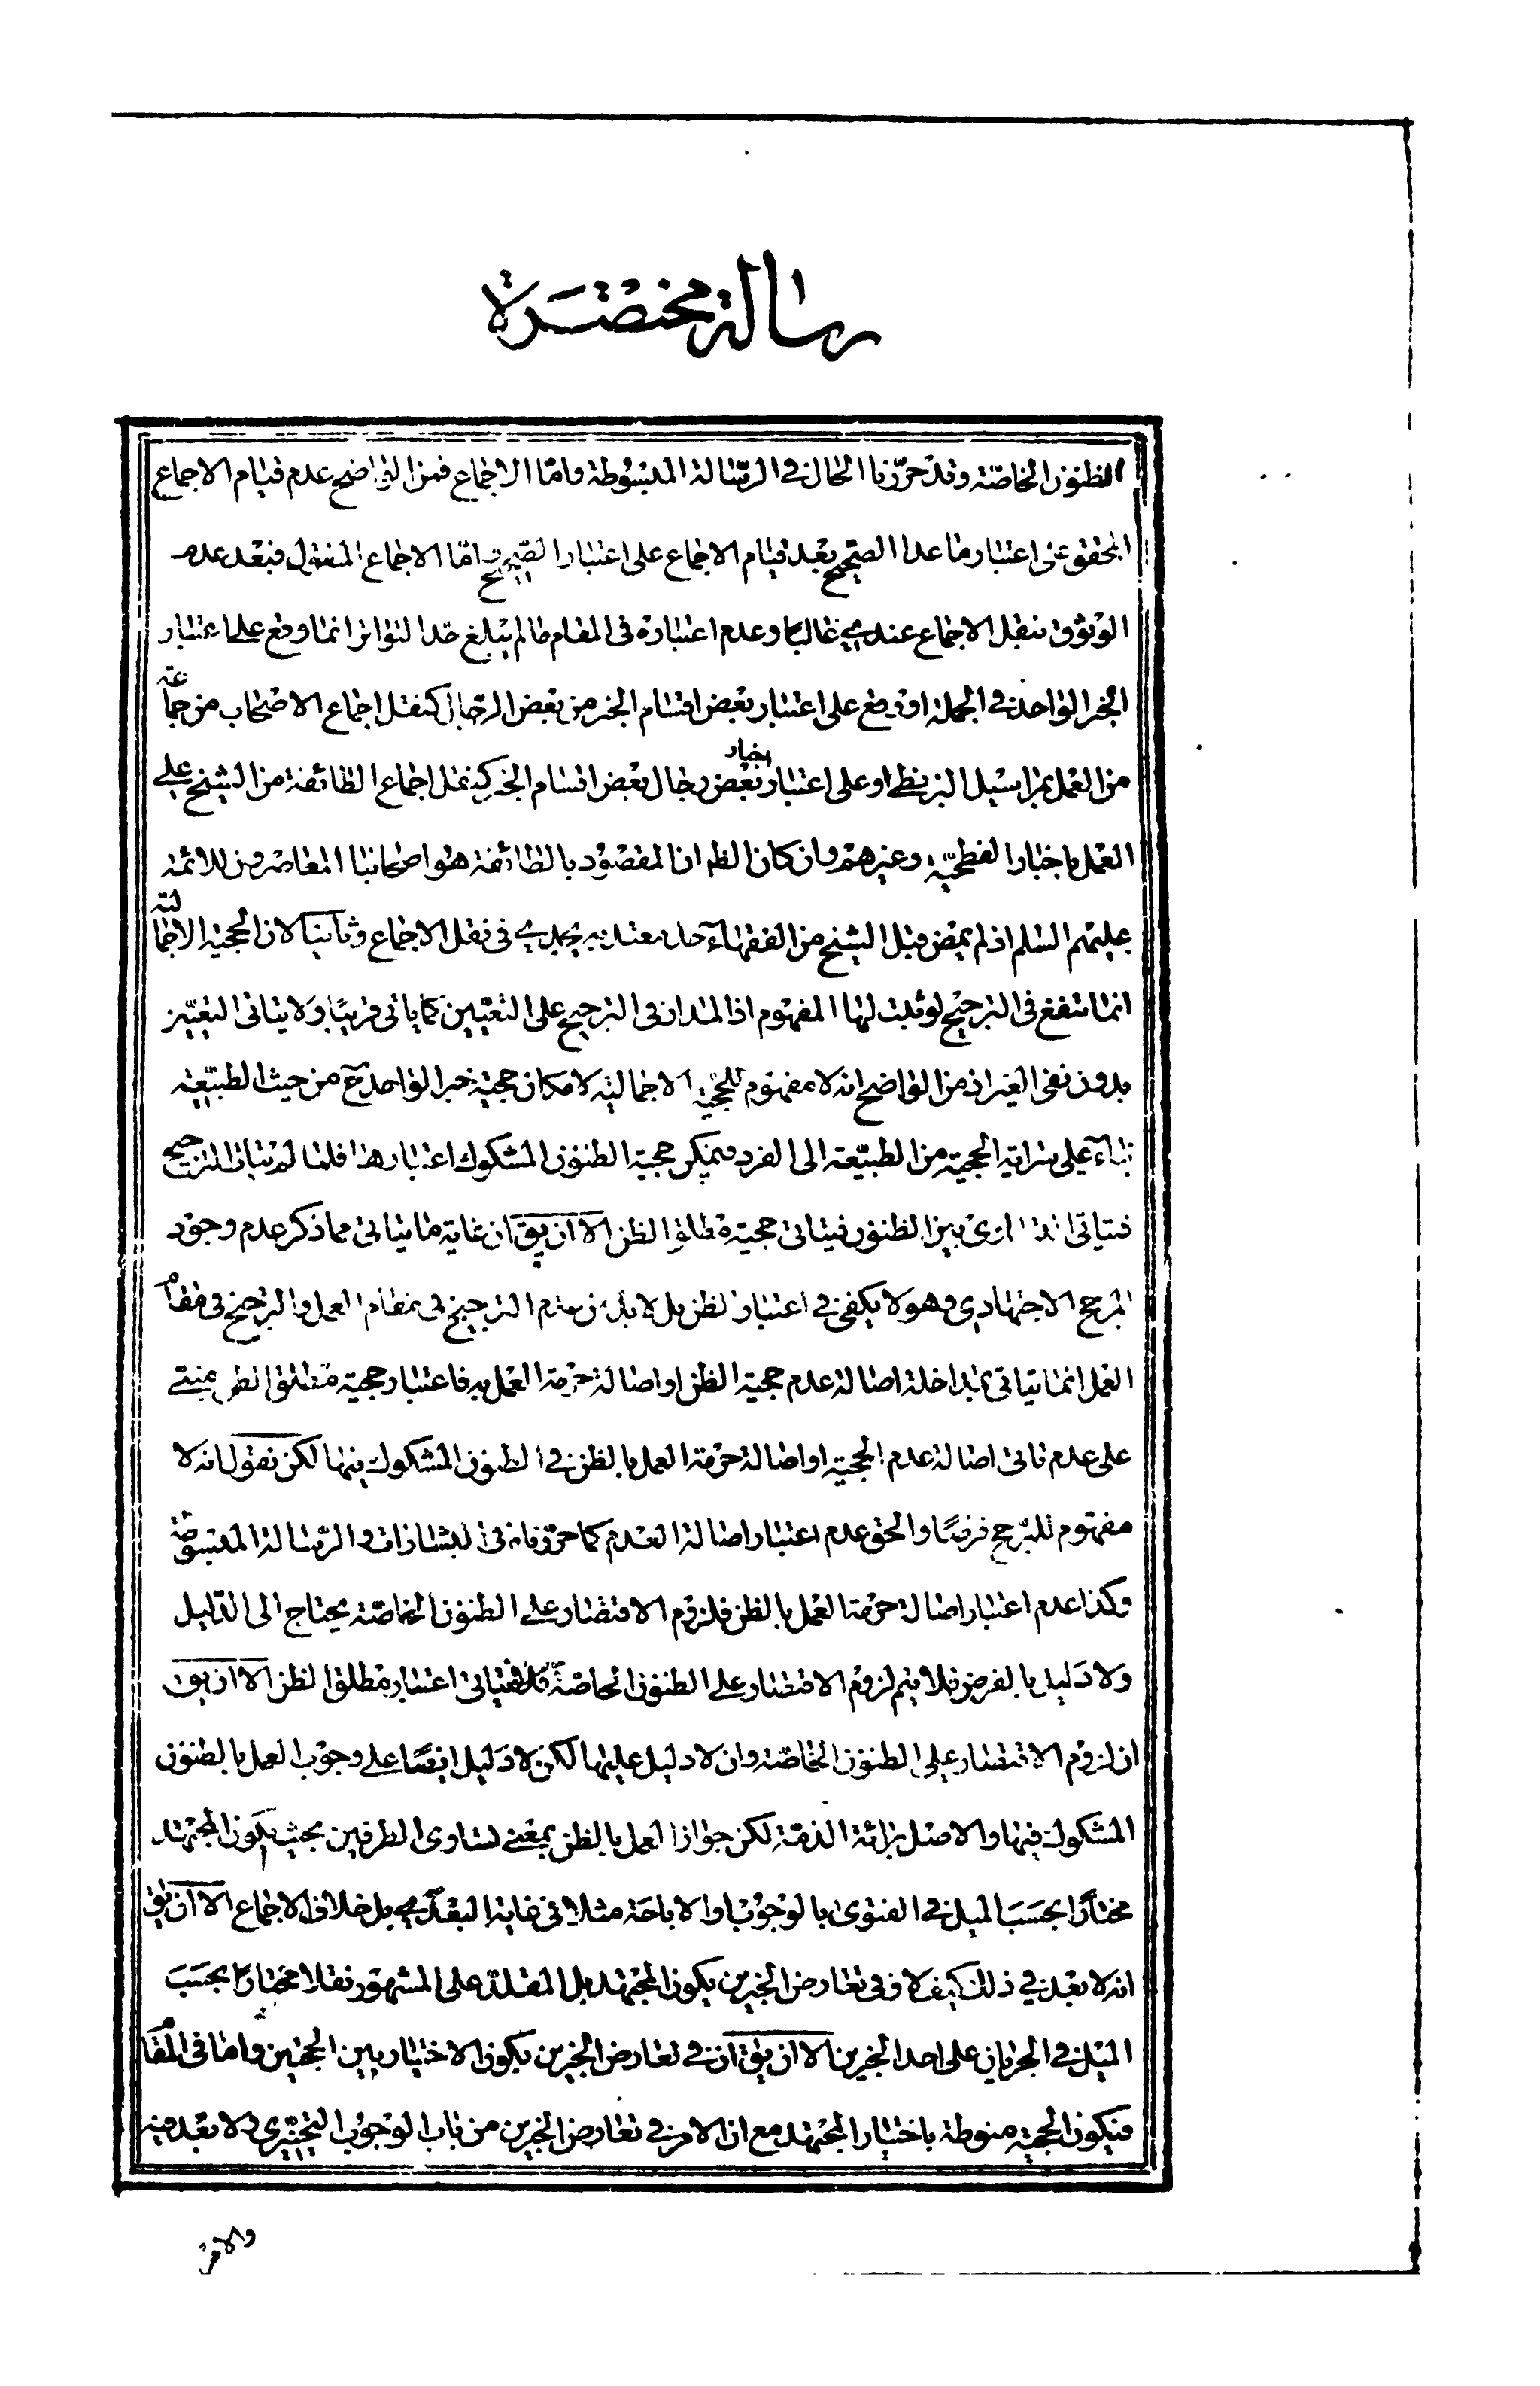 رسالة مختصرة
الظنون الخاصّة وقد حرّرنا الحال فى الرّسالة المبسوطة وامّا الاجماع فمن الواضح عدم قيام الاجماع
المحقق على اعتبار ما عدا الصّحيح بعد قيام الاجماع على اعتبار الصّحيح و امّا الاجماع المنقول فبعد عدم
الوثوق بنقل الاجماع عندى غالبا وعدم اعتباره فى المقام ما لم يبلغ حد التواتر انما وقع على اعتبار
الخبر الواحد فى الجملة او وقع على اعتبار بعض اقسام الخبر من بعض الرّجال كنقل اجماع الاصحاب من جماعة
من العمل بمراسيل البزنطى او على اعتبار اخبار بعض رجال بعض اقسام الخبر كنقل اجماع الطائفة من الشيخ على
العمل باخبار الفطحيّة وغيرهم وان كان الظ ان المقصود بالطائفة هو اصحابنا المعاصرون للائمة
عليهم السّلم اذ لم يمض قبل الشيخ من الفقهاء حد معتد به يجدى فى نقل الاجماع وثانيا لان الحجية الاجمالية
انما تنفع فى الترجيح لو ثبت لها المفهوم اذ المدار فى الترجيح على التعيين كما ياتى قريبا ولا يتاتى التعيّن
بدون نفى الغير اذ من الواضح انه لا مفهوم للحجيّة الاجمالية لامكان حجية خبر الواحد مع من حيث الطبيعة
بناء على سراية الحجية من الطبيعة الى الفرد فيمكن حجية الظنون المشكوك اعتبارها فلما لم يتات الترجيح
فيتاتى التساوى بين الظنون فيتاتى حجية مطلق الظن الا ان يق ان غاية ما يتاتى مما ذكر عدم وجود
المرجح الاجتهادى وهو لا يكفى فى اعتبار الظن بل لا بد من عدم الترجيح فى مقام العمل والترجيح فى مقام
العمل انما يتاتى بمداخلة اصالة عدم حجية الظن او اصالة حرمة العمل به فاعتبار حجية مطلق الظن مبنىّ
على عدم تاتى اصالة عدم الحجية او اصالة حرمة العمل بالظن فى الظنون المشكوك فيها لكن نقول انه لا
مفهوم للمرجح فرضا والحق عدم اعتبار اصالة العدم كما حرّرناه فى البشارات والرّسالة المبسوطة
وكذا عدم اعتبار اصالة حرمة العمل بالظن فلزوم الاقتصار على الظنون الخاصّة يحتاج الى الدّليل
ولا دليل بالفرض فلا يتم لزوم الاقتصار على الظنون الخاصّة فيتاتى اعتبار مطلق الظن الا ان يق
ان لزوم الاقتصار على الظنون الخاصّة وان لا دليل عليها لكن لا دليل ايضا على وجوب العمل بالظنون
المشكوك فيها والاصل برائة الذمّة لكن جواز العمل بالظن بمعنى تساوى الطرفين بحيث يكون المجتهد
مختارا بحسب الميل فى الفتوى بالوجوب او الاباحة مثلا فى غاية البعد بل خلاف الاجماع الا ان يق
انه لا بعد فى ذلك كيف لا وفى تعارض الخبرين يكون المجتهد بل المقلد على المشهور نقلا مختارا بحسب
الميل فى الجريان على احد الخبرين الا ان يق ان فى تعارض الخبرين يكون الاختيار بين الحجتين وامّا فى المقام
فيكون الحجية منوطة باختيار المجتهد مع ان الامر فى تعارض الخبرين من باب الوجوب التخييرى ولا بعد فيه
والامر